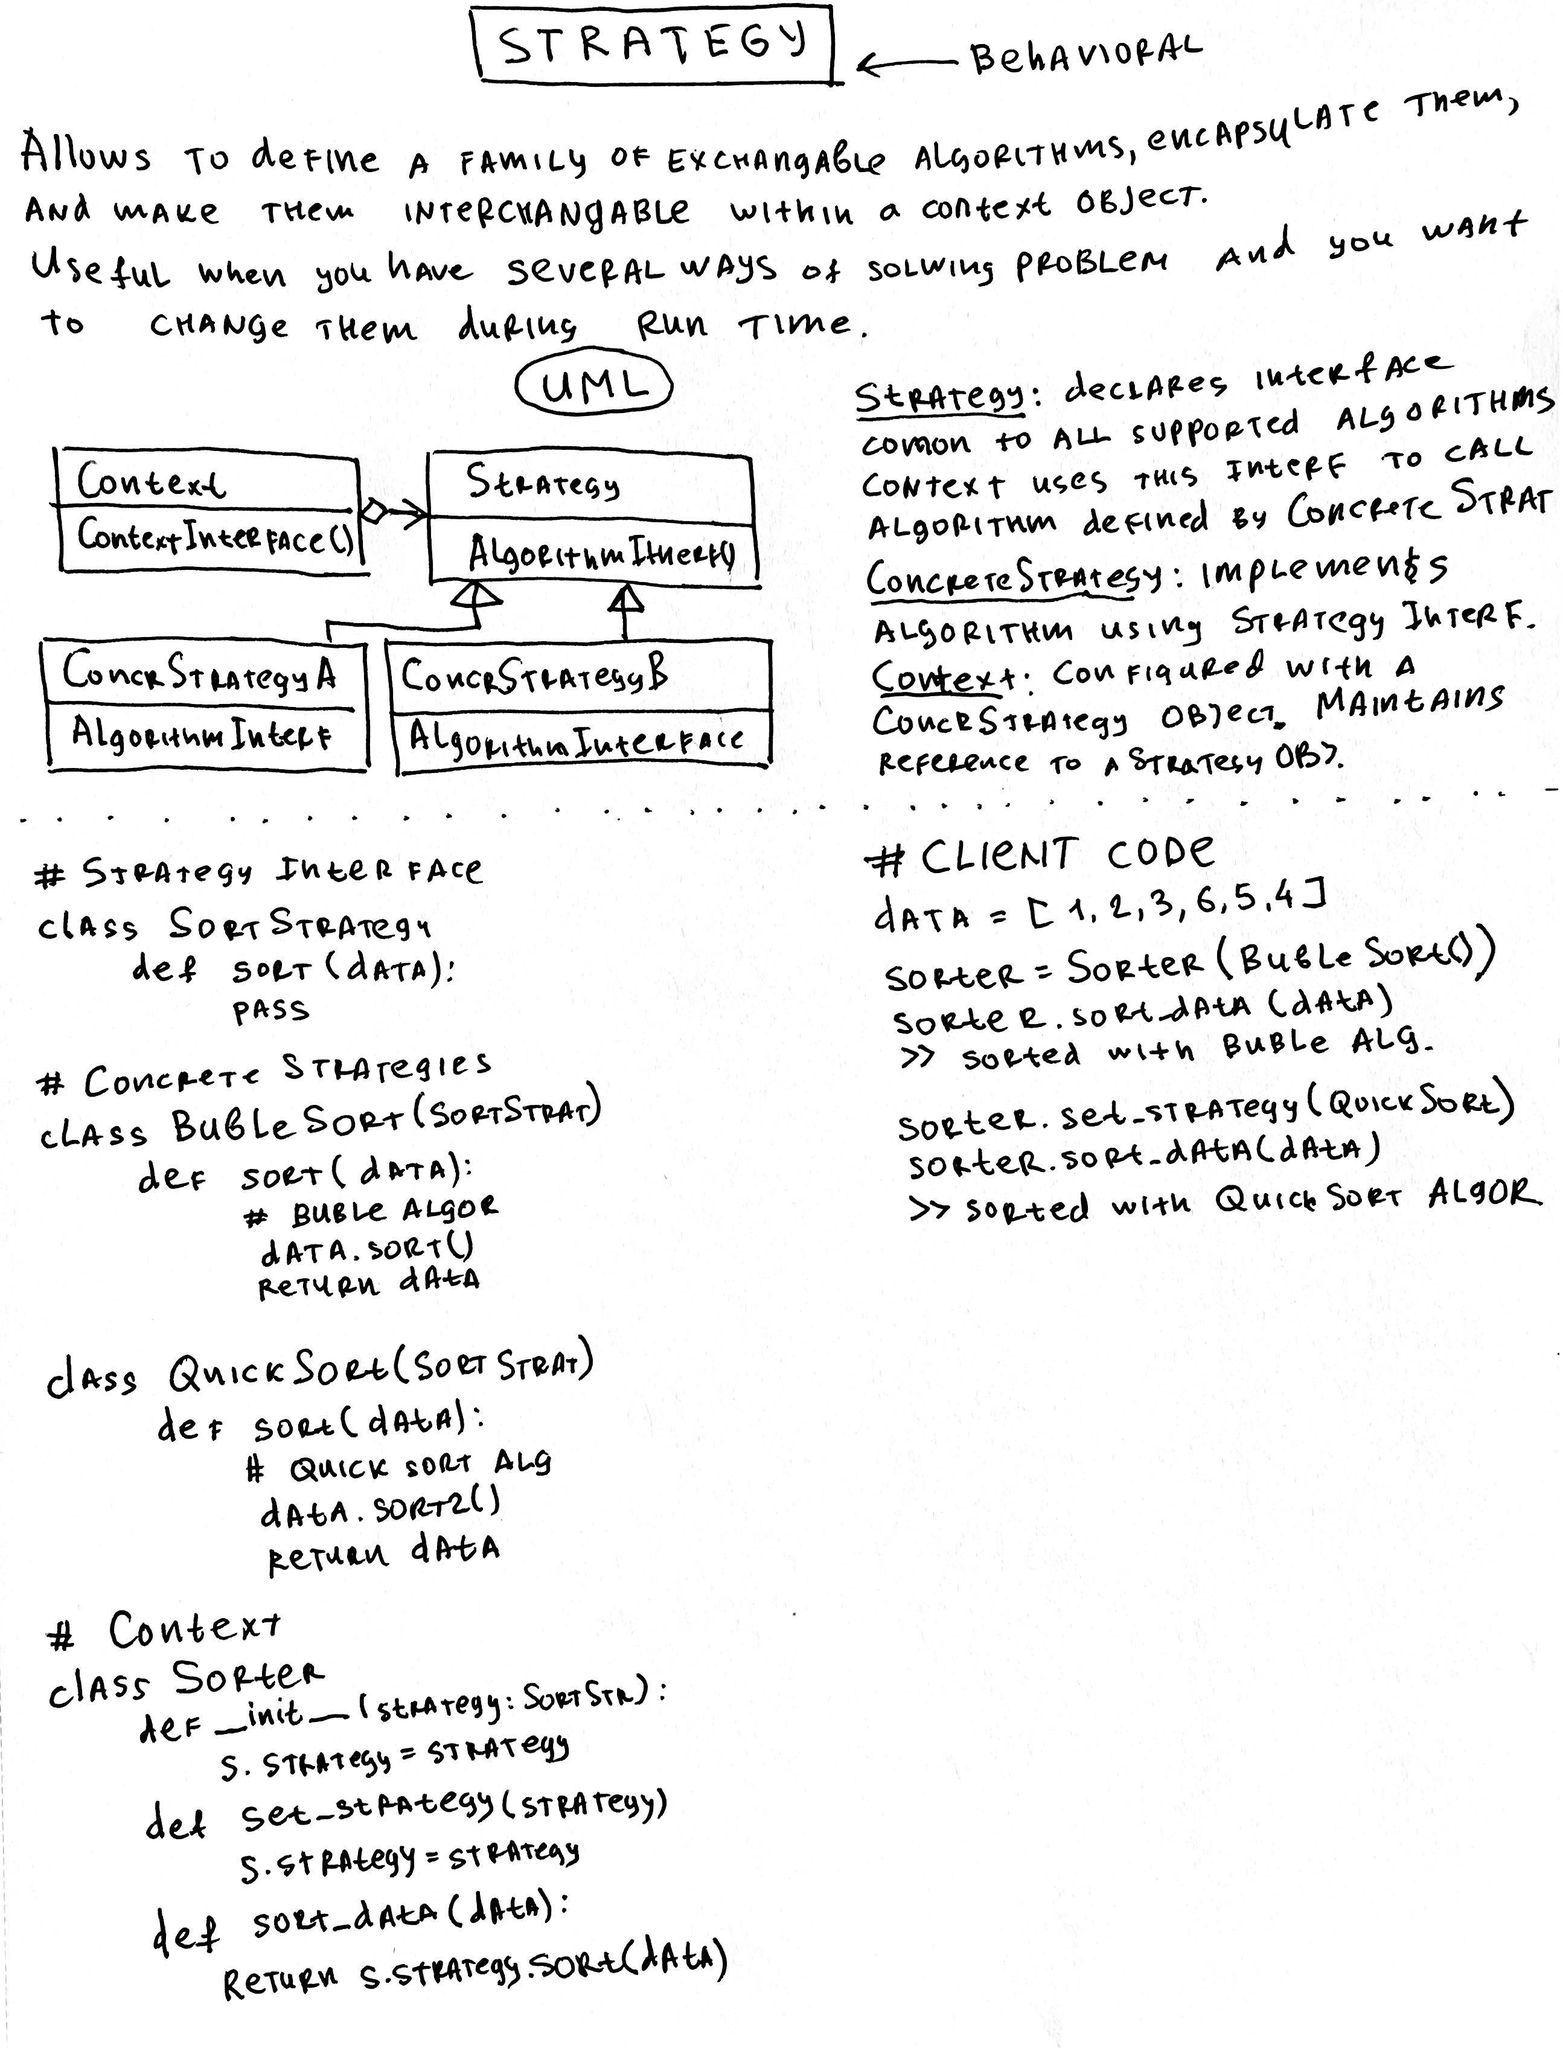 STRATEGY
BehAVIORAL
Allows to define A FAMILY OF EXCHANGABLE ALGORITHMS, encapsulate them,
And make them INTERCHANGABLE within a context OBJECT.
Useful when you have several ways of solwing problem And you want
to change them during Run Time.
UML
Context
ContextInterface()
Strategy
AlgorithmITnerf()
ConcrStrategyA
AlgorithmInterf
ConcrStrategyB
AlgorithmInterface
Strategy: declares interface
comon to all supported algorithms
Context uses this Interf to call
algorithm defined by Concrete Strat
ConcreteStrategy: implements
algorithm using Strategy Interf.
Context: Configured with a
ConcrStrategy object. Maintains
reference to a Strategy OBJ.
# Strategy Interface
class SortStrategy
def sort(data):
pass
# Concrete Strategies
class BubleSort(SortStrat)
def sort(data):
# Buble Algor
data.sort()
return data
class QuickSort(SortStrat)
def sort(data):
# Quick sort Alg
data.sort2()
return data
# Context
class Sorter
def __init__(strategy: SortStr):
s.strategy = strategy
def set_strategy(strategy)
s.strategy = strategy
def sort_data(data):
Return s.strategy.sort(data)
# CLIENT CODE
data = [1,2,3,6,5,4]
sorter = Sorter(BubleSort())
sorter.sort_data(data)
>> sorted with Buble Alg.
sorter.set_strategy(QuickSort)
sorter.sort_data(data)
>> sorted with QuickSort Algor